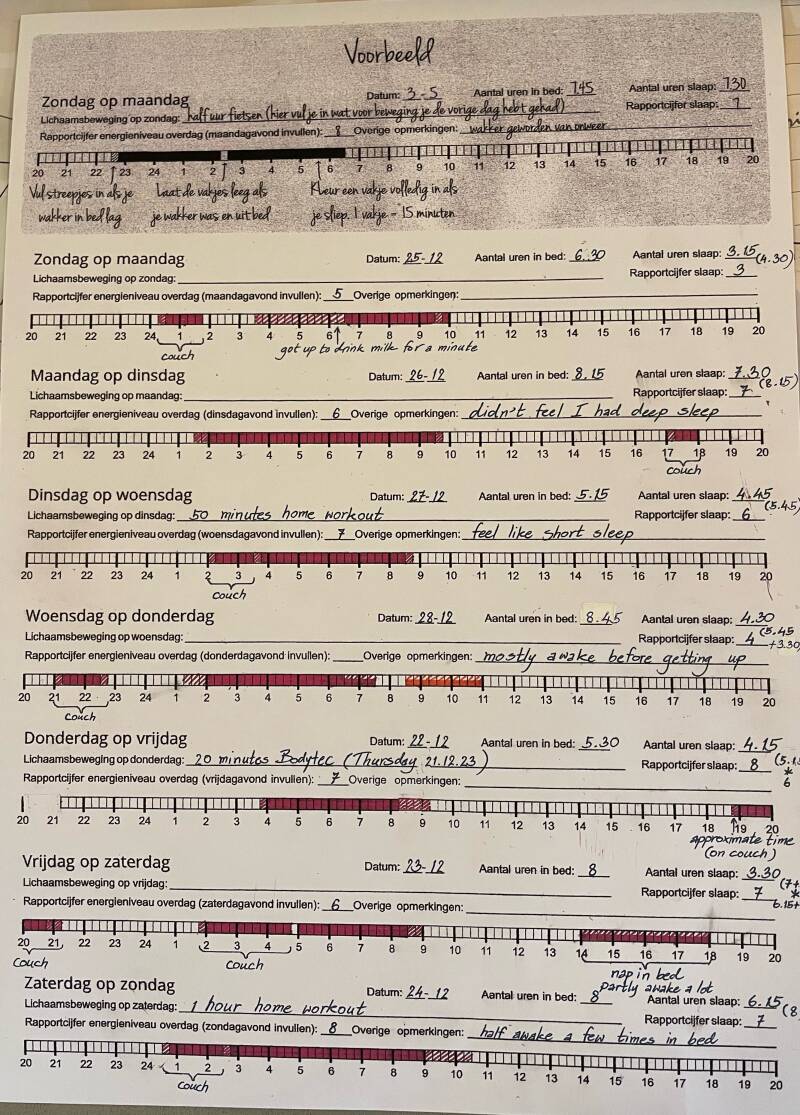 Voorbeeld
Zondag op maandag Datum: 3-5 Aantal uren in bed: 7.45 Aantal uren slaap: 7.30
Lichaamsbeweging op zondag: half uur fietsen (hier vul je in wat voor beweging je de vorige dag hebt gehad) Rapportcijfer slaap: 7
Rapportcijfer energieniveau overdag (maandagavond invullen): 8 Overige opmerkingen: wakker geworden van onweer
20 21 22 23 24 1 2 3 4 5 6 7 8 9 10 11 12 13 14 15 16 17 18 19 20
Vul streepjes in als je Laat de vakjes leeg als Kleur een vakje volledig in als
wakker in bed lag je wakker was en uit bed je sliep. 1 vakje = 15 minuten
Zondag op maandag Datum: 25-12 Aantal uren in bed: 6.30 Aantal uren slaap: 3.15 (4.30)
Lichaamsbeweging op zondag: Rapportcijfer slaap: 3
Rapportcijfer energieniveau overdag (maandagavond invullen): 5 Overige opmerkingen:
20 21 22 23 24 1 2 3 4 5 6 7 8 9 10 11 12 13 14 15 16 17 18 19 20
couch got up to drink milk for a minute
Maandag op dinsdag Datum: 26-12 Aantal uren in bed: 8.15 Aantal uren slaap: 7.30 (8.15)
Lichaamsbeweging op maandag: Rapportcijfer slaap: 7
Rapportcijfer energieniveau overdag (dinsdagavond invullen): 6 Overige opmerkingen: didn't feel I had deep sleep
20 21 22 23 24 1 2 3 4 5 6 7 8 9 10 11 12 13 14 15 16 17 18 19 20
couch
Dinsdag op woensdag Datum: 27-12 Aantal uren in bed: 5.15 Aantal uren slaap: 4.45 (5.45)
Lichaamsbeweging op dinsdag: 50 minutes home workout Rapportcijfer slaap: 6
Rapportcijfer energieniveau overdag (woensdagavond invullen): 7 Overige opmerkingen: feel like short sleep
20 21 22 23 24 1 2 3 4 5 6 7 8 9 10 11 12 13 14 15 16 17 18 19 20
couch
Woensdag op donderdag Datum: 28-12 Aantal uren in bed: 8.45 Aantal uren slaap: 4.30
Lichaamsbeweging op woensdag: Rapportcijfer slaap: 4 (5.45 +3.30
Rapportcijfer energieniveau overdag (donderdagavond invullen): Overige opmerkingen: mostly awake before getting up
20 21 22 23 24 1 2 3 4 5 6 7 8 9 10 11 12 13 14 15 16 17 18 19 20
couch
Donderdag op vrijdag Datum: 22-12 Aantal uren in bed: 5.30 Aantal uren slaap: 4.15
Lichaamsbeweging op donderdag: 20 minutes Bodytec (Thursday 21.12.23) Rapportcijfer slaap: 8
Rapportcijfer energieniveau overdag (vrijdagavond invullen): 7 Overige opmerkingen: * 6
20 21 22 23 24 1 2 3 4 5 6 7 8 9 10 11 12 13 14 15 16 17 18 19 20
approximate time
(on couch)
Vrijdag op zaterdag Datum: 23-12 Aantal uren in bed: 8 Aantal uren slaap: 3.30
Lichaamsbeweging op vrijdag: Rapportcijfer slaap: 7 (7+
Rapportcijfer energieniveau overdag (zaterdagavond invullen): 6 Overige opmerkingen: * 6.15+
20 21 22 23 24 1 2 3 4 5 6 7 8 9 10 11 12 13 14 15 16 17 18 19 20
couch couch nap in bed
partly awake a lot
Zaterdag op zondag Datum: 24-12 Aantal uren in bed: 8 Aantal uren slaap: 6.15 (8
Lichaamsbeweging op zaterdag: 1 hour home workout Rapportcijfer slaap: 7
Rapportcijfer energieniveau overdag (zondagavond invullen): 8 Overige opmerkingen: half awake a few times in bed
20 21 22 23 24 1 2 3 4 5 6 7 8 9 10 11 12 13 14 15 16 17 18 19 20
couch